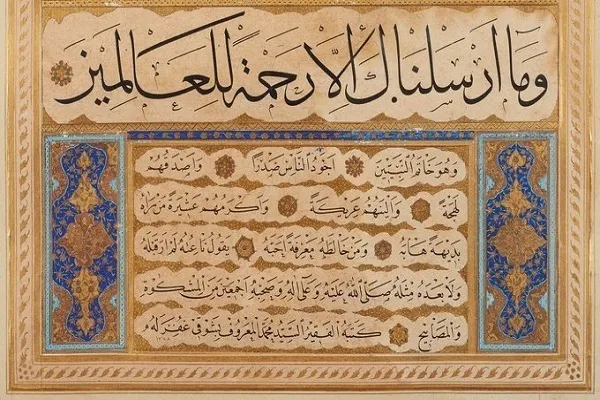 وَمَا أَرْسَلْنَاكَ إِلَّا رَحْمَةً لِلْعَالَمِينَ
وَهُوَ خَاتَمُ النَّبِيِّينَ أَجْوَدُ النَّاسِ صَدْرًا وَأَصْدَقُهُمْ
لَهْجَةً وَأَلْيَنُهُمْ عَرِيكَةً وَأَكْرَمُهُمْ عَشِيرَةً مَنْ رَآهُ
بَدِيهَةً هَابَهُ وَمَنْ خَالَطَهُ مَعْرِفَةً أَحَبَّهُ يَقُولُ نَاعِتُهُ لَمْ أَرَ قَبْلَهُ
وَلَا بَعْدَهُ مِثْلَهُ صَلَّى اللَّهُ عَلَيْهِ وَعَلَى آلِهِ وَصَحْبِهِ أَجْمَعِينَ مِنَ الْمِشْكَوةِ
وَالْمَصَابِيحِ كَتَبَهُ الْفَقِيرُ السَّيِّدُ مُحَمَّدُ الْمَعْرُوفُ بِشَوْقِي غُفِرَ لَهُ